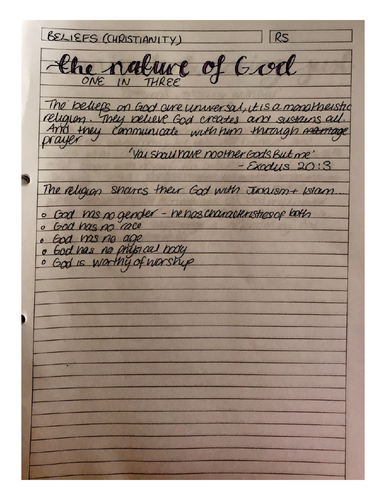 BELIEFS (CHRISTIANITY)
RS
the nature of God
ONE IN THREE
The beliefs on God are universal, it is a monotheistic
religion. They believe God creates and sustains all.
And they communicate with him through
prayer
'You shall have no other Gods But me'
- Exodus 20:3
The religion shares their God with Judaism + Islam...
God has no gender - he has characteristics of both
God has no race
God has no age
God has no physical body
God is worthy of worship